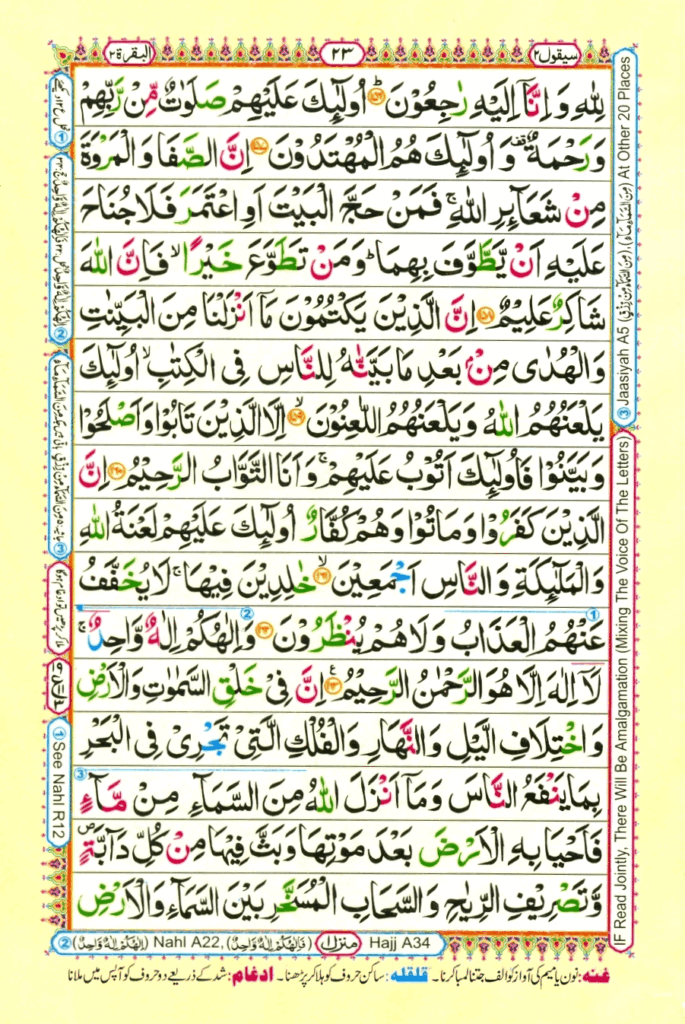 سيقول٢
٢٣
البقرة٢
لِلّٰهِ وَ اِنَّاۤ اِلَيْهِ رٰجِعُوْنَ ؕ اُولٰٓئِكَ عَلَيْهِمْ صَلَوٰتٌ مِّنْ رَّبِّهِمْ
وَرَحْمَةٌ وَ اُولٰٓئِكَ هُمُ الْمُهْتَدُوْنَ ۝ اِنَّ الصَّفَا وَ الْمَرْوَةَ
مِنْ شَعَآئِرِ اللّٰهِ ۚ فَمَنْ حَجَّ الْبَيْتَ اَوِ اعْتَمَرَ فَلَا جُنَاحَ
عَلَيْهِ اَنْ يَّطَّوَّفَ بِهِمَا ؕ وَمَنْ تَطَوَّعَ خَيْرًا ۙ فَاِنَّ اللّٰهَ
شَاكِرٌ عَلِيْمٌ ۝ اِنَّ الَّذِيْنَ يَكْتُمُوْنَ مَاۤ اَنْزَلْنَا مِنَ الْبَيِّنٰتِ
وَالْهُدٰى مِنْۢ بَعْدِ مَا بَيَّنّٰهُ لِلنَّاسِ فِى الْكِتٰبِ ۙ اُولٰٓئِكَ
يَلْعَنُهُمُ اللّٰهُ وَ يَلْعَنُهُمُ اللّٰعِنُوْنَ ۝ۙ اِلَّا الَّذِيْنَ تَابُوْا وَاَصْلَحُوْا
وَ بَيَّنُوْا فَاُولٰٓئِكَ اَتُوْبُ عَلَيْهِمْ ۚ وَ اَنَا التَّوَّابُ الرَّحِيْمُ ۝ اِنَّ
الَّذِيْنَ كَفَرُوْا وَمَاتُوْا وَهُمْ كُفَّارٌ اُولٰٓئِكَ عَلَيْهِمْ لَعْنَةُ اللّٰهِ
وَ الْمَلٰٓئِكَةِ وَ النَّاسِ اَجْمَعِيْنَ ۝ۙ خٰلِدِيْنَ فِيْهَا ۚ لَا يُخَفَّفُ
عَنْهُمُ الْعَذَابُ وَ لَا هُمْ يُنْظَرُوْنَ ۝ وَ اِلٰهُكُمْ اِلٰهٌ وَّاحِدٌ ۚ
لَاۤ اِلٰهَ اِلَّا هُوَ الرَّحْمٰنُ الرَّحِيْمُ ۝ اِنَّ فِىْ خَلْقِ السَّمٰوٰتِ وَ الْاَرْضِ
وَ اخْتِلَافِ الَّيْلِ وَ النَّهَارِ وَ الْفُلْكِ الَّتِىْ تَجْرِىْ فِى الْبَحْرِ
بِمَا يَنْفَعُ النَّاسَ وَ مَاۤ اَنْزَلَ اللّٰهُ مِنَ السَّمَآءِ مِنْ مَّآءٍ
فَاَحْيَا بِهِ الْاَرْضَ بَعْدَ مَوْتِهَا وَ بَثَّ فِيْهَا مِنْ كُلِّ دَآبَّةٍ ۪
وَّ تَصْرِيْفِ الرِّيٰحِ وَ السَّحَابِ الْمُسَخَّرِ بَيْنَ السَّمَآءِ وَ الْاَرْضِ
② (اِلٰهُكُمْ اِلٰهٌ وَّاحِدٌ) Nahl A22, (فَاِلٰهُكُمْ اِلٰهٌ وَّاحِدٌ) منزل ١ Hajj A34
③ Jaasiyah A5 At Other 20 Places
IF Read Jointly, There Will Be Amalgamation (Mixing The Voice Of The Letters)
① See Nahl R12
غنه: نون یا میم کی آواز کو الف جتنا لمبا کرنا۔ قلقلہ: ساکن حروف کو ہلا کر پڑھنا۔ ادغام: شد کے ذریعے دو حروف کو آپس میں ملانا